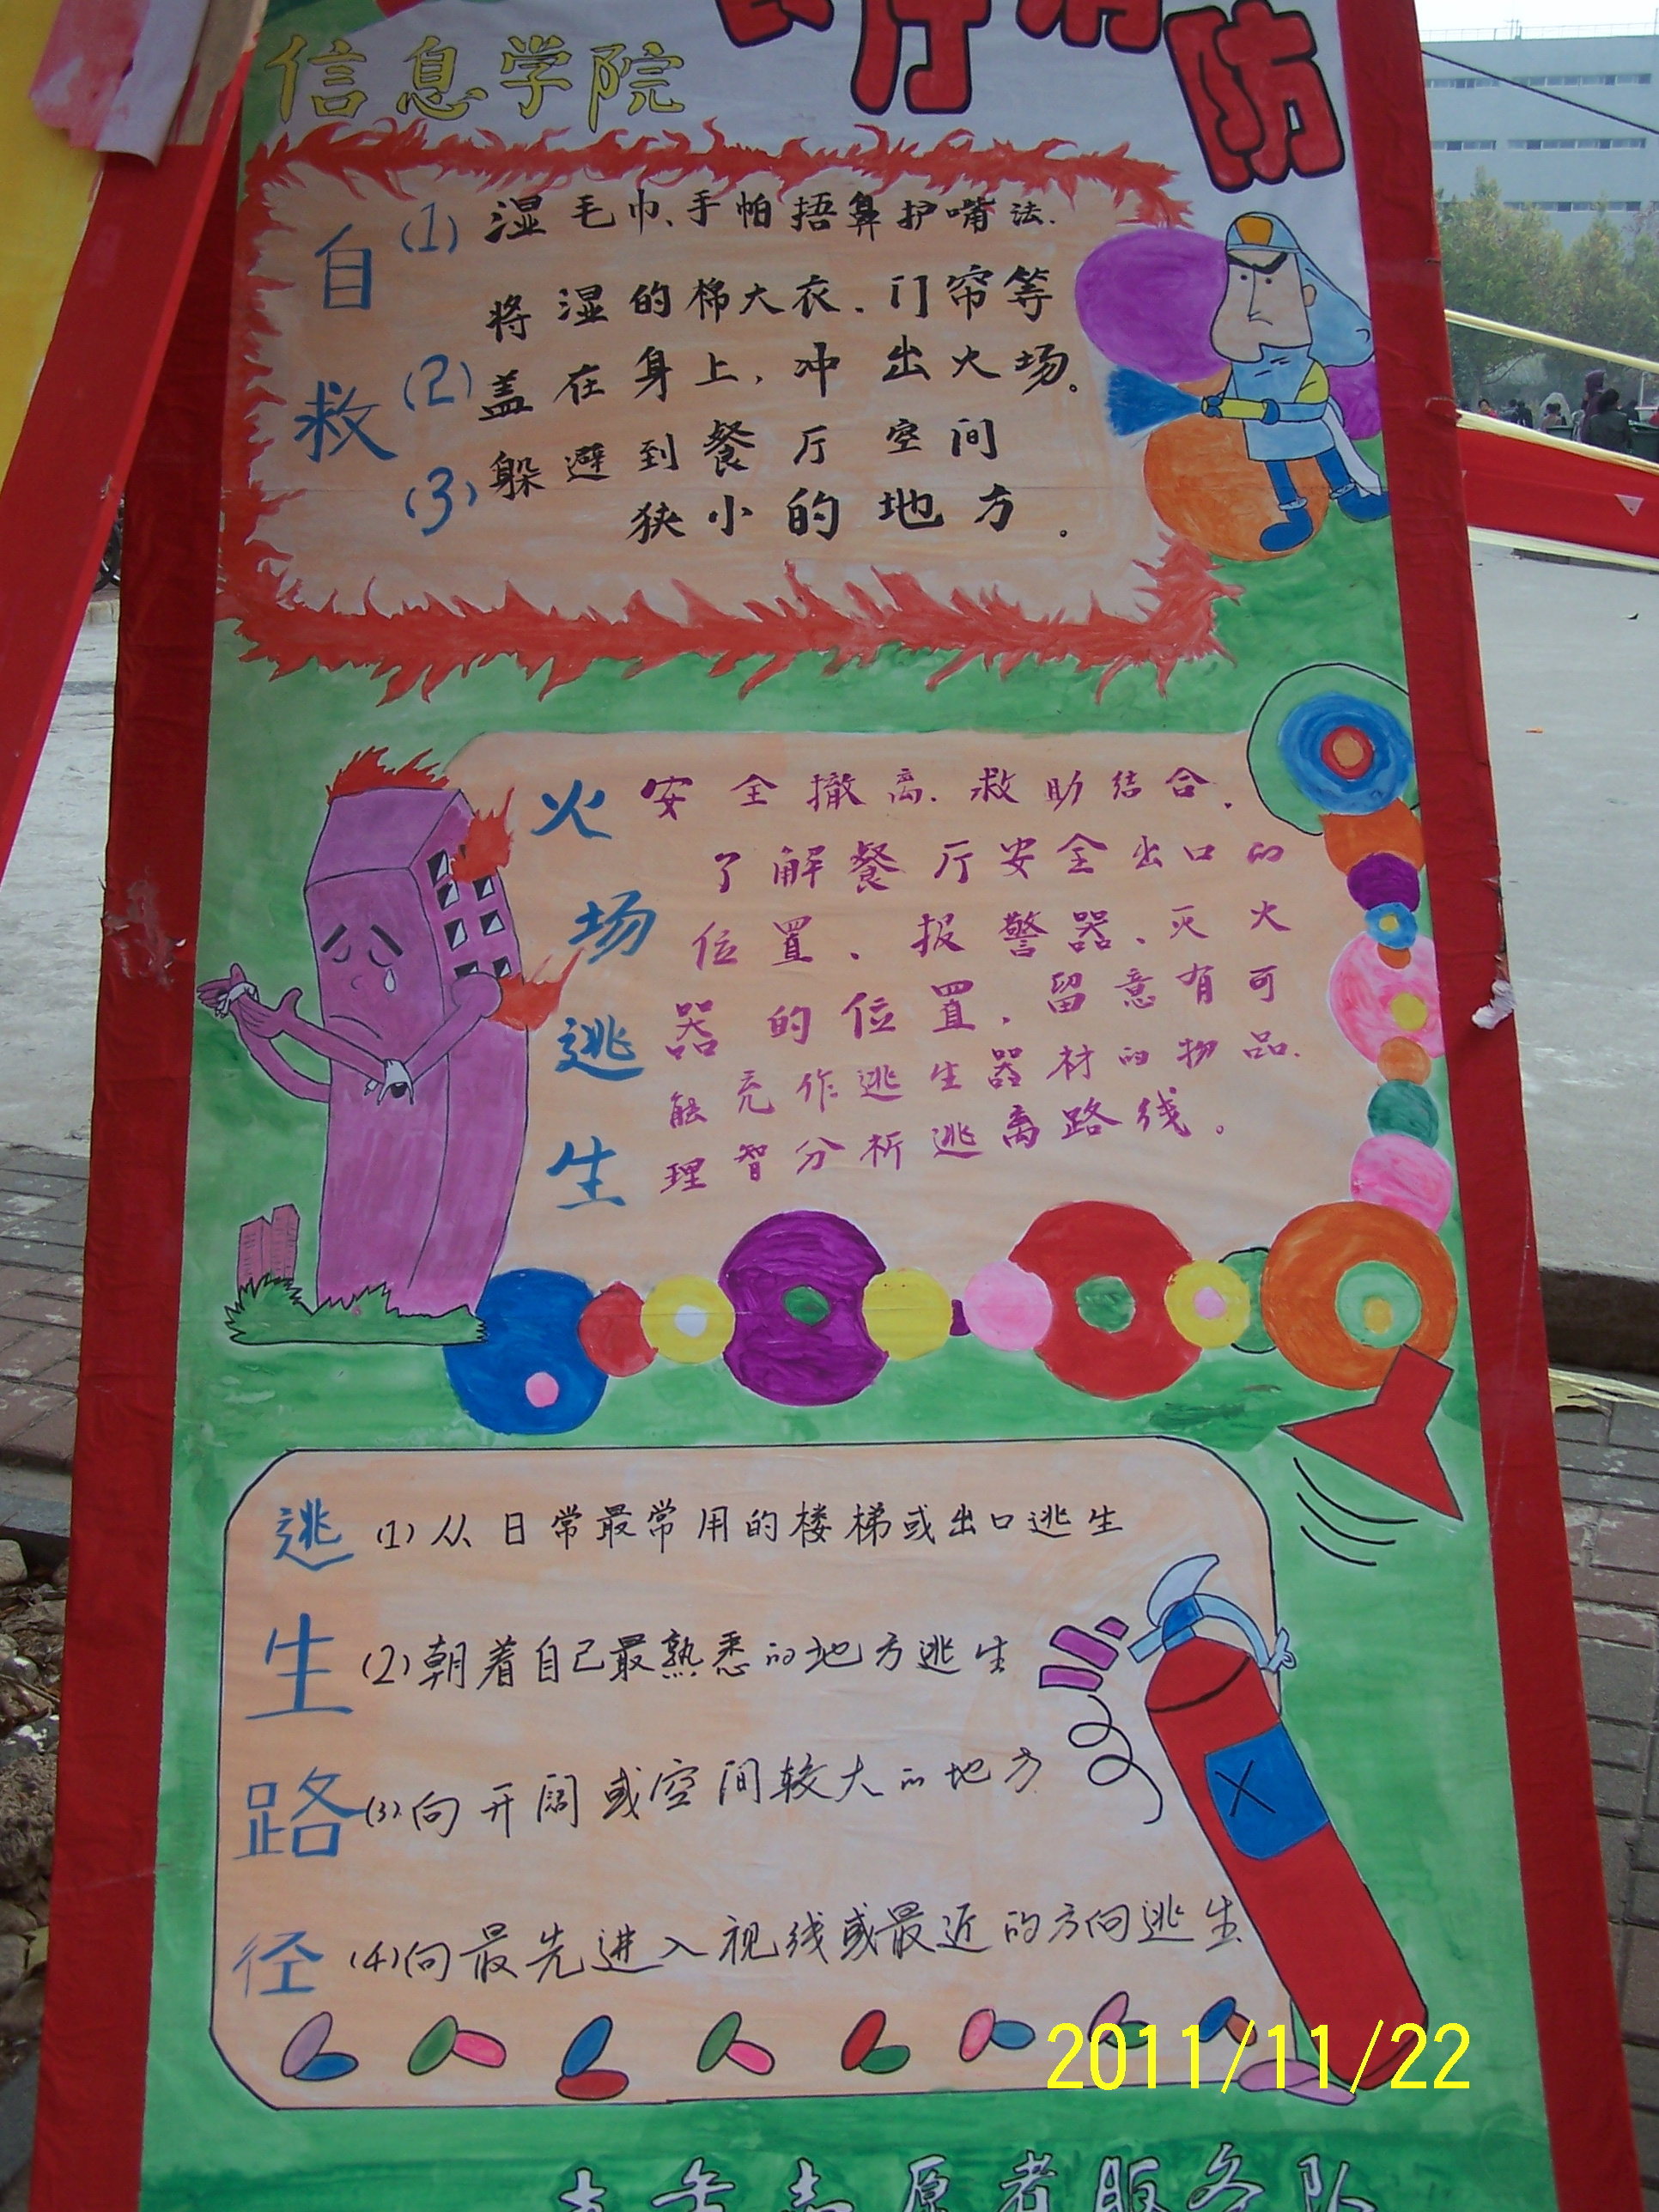 信息学院
厅消防
自救
(1) 湿毛巾、手帕捂鼻护嘴法.
将湿的棉大衣、门帘等
(2) 盖在身上，冲出火场。
(3) 躲避到餐厅空间
狭小的地方.
火场逃生
安全撤离、救助结合.
了解餐厅安全出口的
位置、报警器、灭火
器的位置，留意有可
能充作逃生器材的物品.
理智分析逃离路线。
逃生路径
(1) 从日常最常用的楼梯或出口逃生
(2) 朝着自己最熟悉的地方逃生
(3) 向开阔或空间较大的地方
(4) 向最先进入视线或最近的方向逃生
2011/11/22
志愿者服务队